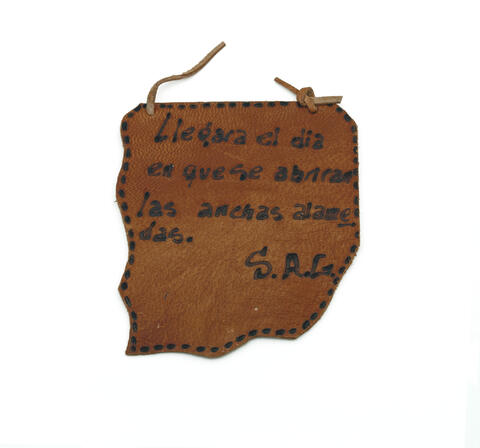 Llegara el dia
en que se abriran
las anchas alame
das.
S.A.G.